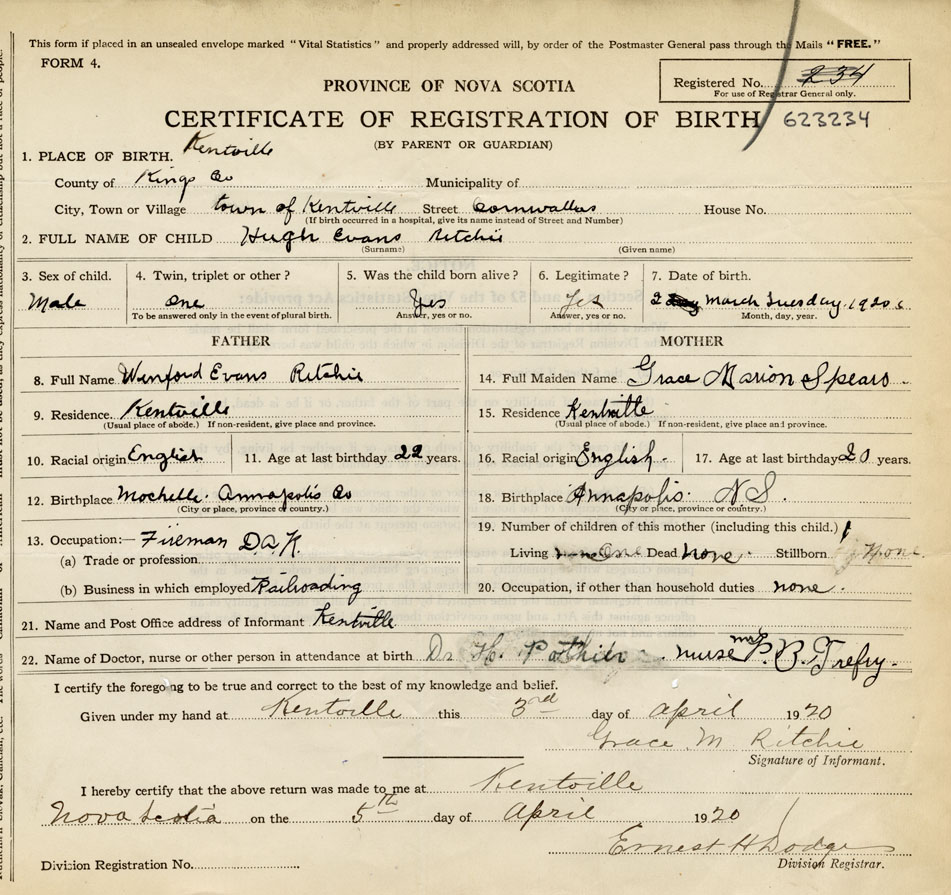 This form if placed in an unsealed envelope marked "Vital Statistics" and properly addressed will, by order of the Postmaster General pass through the Mails "FREE."
FORM 4.
Registered No. 234
For use of Registrar General only.
PROVINCE OF NOVA SCOTIA
CERTIFICATE OF REGISTRATION OF BIRTH 623234
(BY PARENT OR GUARDIAN)
1. PLACE OF BIRTH. Kentville
County of Kings Co Municipality of
City, Town or Village town of Kentville Street Cornwallas House No.
(If birth occurred in a hospital, give its name instead of Street and Number)
2. FULL NAME OF CHILD Hugh Evans Ritchie
(Surname) (Given name)
3. Sex of child. 4. Twin, triplet or other? 5. Was the child born alive? 6. Legitimate? 7. Date of birth.
Male one Yes Yes 2 March Tuesday. 1920
To be answered only in the event of plural birth. Answer, yes or no. Answer, yes or no. Month, day, year.
FATHER MOTHER
8. Full Name Winford Evans Ritchie 14. Full Maiden Name Grace Marion Spears
9. Residence. Kentville 15. Residence Kentville
(Usual place of abode.) If non-resident, give place and province. (Usual place of abode.) If non-resident, give place and province.
10. Racial origin English 11. Age at last birthday 22 years. 16. Racial origin English. 17. Age at last birthday 20 years.
12. Birthplace Mochelle. Annapolis Co 18. Birthplace Annapolis. N S.
(City or place, province or country.) (City or place, province or country.)
13. Occupation:— Fireman D.A.R. 19. Number of children of this mother (including this child.) 1
(a) Trade or profession Living One Dead None. Stillborn None.
(b) Business in which employed Railroading 20. Occupation, if other than household duties none.
21. Name and Post Office address of Informant Kentville
22. Name of Doctor, nurse or other person in attendance at birth Dr H. nurse Mrs P. B. Trefry.
I certify the foregoing to be true and correct to the best of my knowledge and belief.
Given under my hand at Kentville this 3rd day of April 1920
Grace M Ritchie
Signature of Informant.
I hereby certify that the above return was made to me at Kentville
Nova Scotia on the 5th day of April 1920
Ernest H Dodge
Division Registration No. Division Registrar.